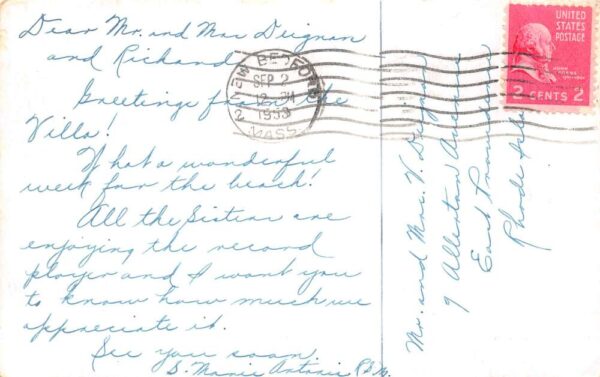 Dear Mr. and Mrs Deignan
and Richard
Greetings from the
Villa!
What a wonderful
week for the beach!
All the Sisters are
enjoying the record
player and I want you
to know how much we
appreciate it.
See you soon.
S. Marie Antonia R.S.M.
NEW BEDFORD
SEP 2
1953
MASS.
UNITED
STATES
POSTAGE
JOHN ADAMS
2 CENTS 2
Mr. and Mrs. V. Deignan
9 Allerton Avenue
East Providence
Rhode Island